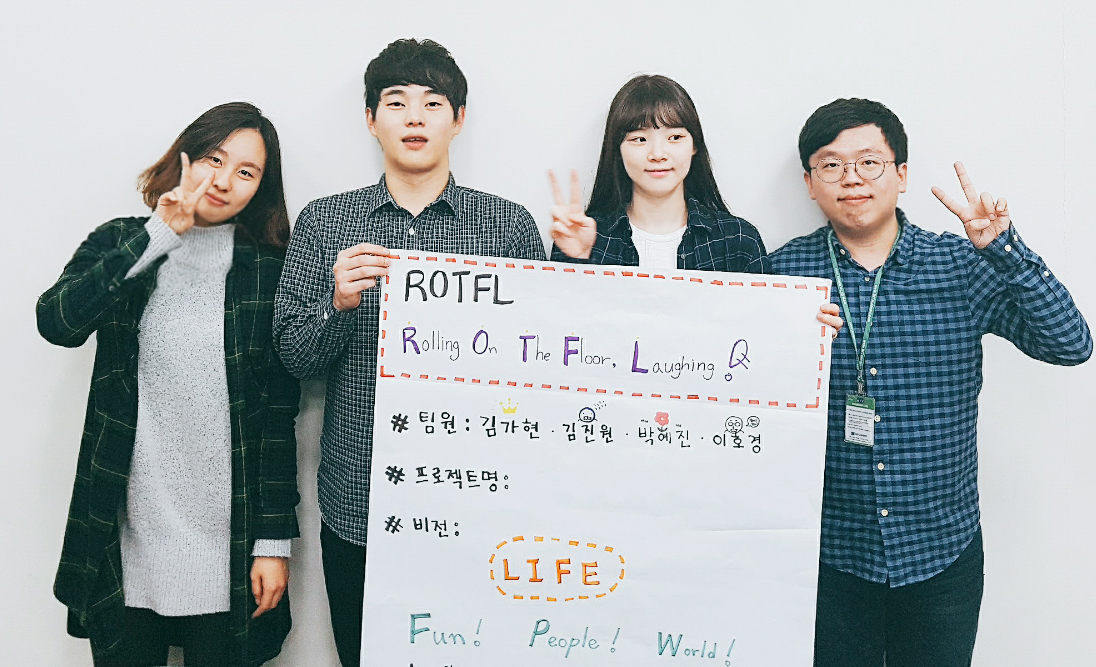 ROTFL
Rolling On The Floor, Laughing!
# 팀원 : 김가현 · 김진원 · 박혜진 · 이호경
# 프로젝트명 :
# 비전 :
LIFE
Fun! People! World!